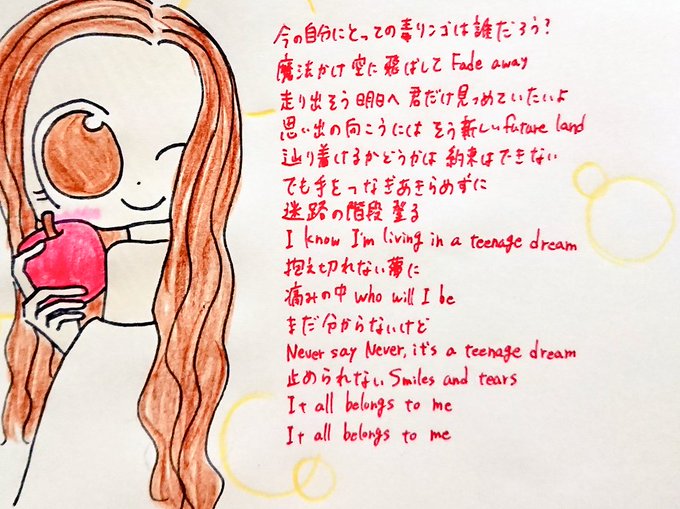 今の自分にとっての毒リンゴは誰だろう?
魔法かけ空に飛ばして Fade away
走り出そう明日へ 君だけ見つめていたいよ
思い出の向こうには そう新しいfuture land
辿り着けるかどうかは 約束はできない
でも手をつなぎあきらめずに
迷路の階段 登る
I know I'm living in a teenage dream
抱え切れない夢に
痛みの中 who will I be
まだ分からないけど
Never say Never, it's a teenage dream
止められない Smiles and tears
It all belongs to me
It all belongs to me